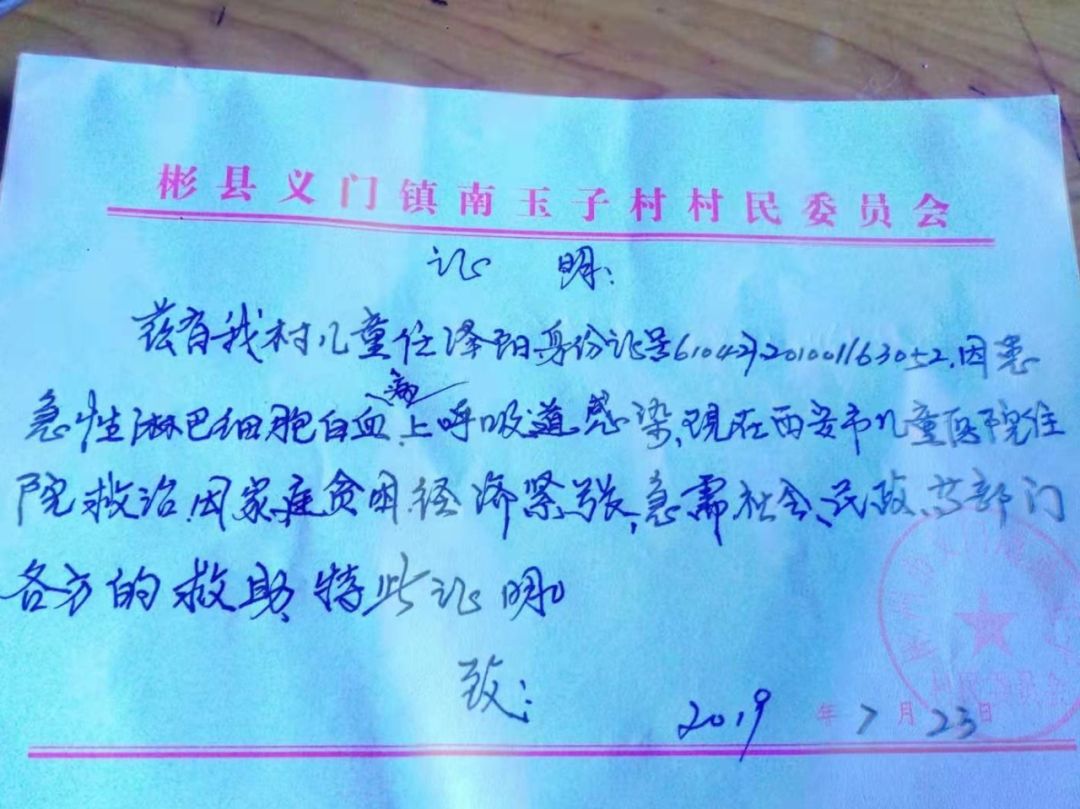 彬县义门镇南玉子村村民委员会
证 明:
兹有我村儿童任泽阳身份证号 因患
急性淋巴细胞白血病、上呼吸道感染,现在西安市儿童医院住
院救治.因家庭贫困.经济紧张,急需社会、民政、等部门
各方的救助,特此证明。
致:
2019年7月23日